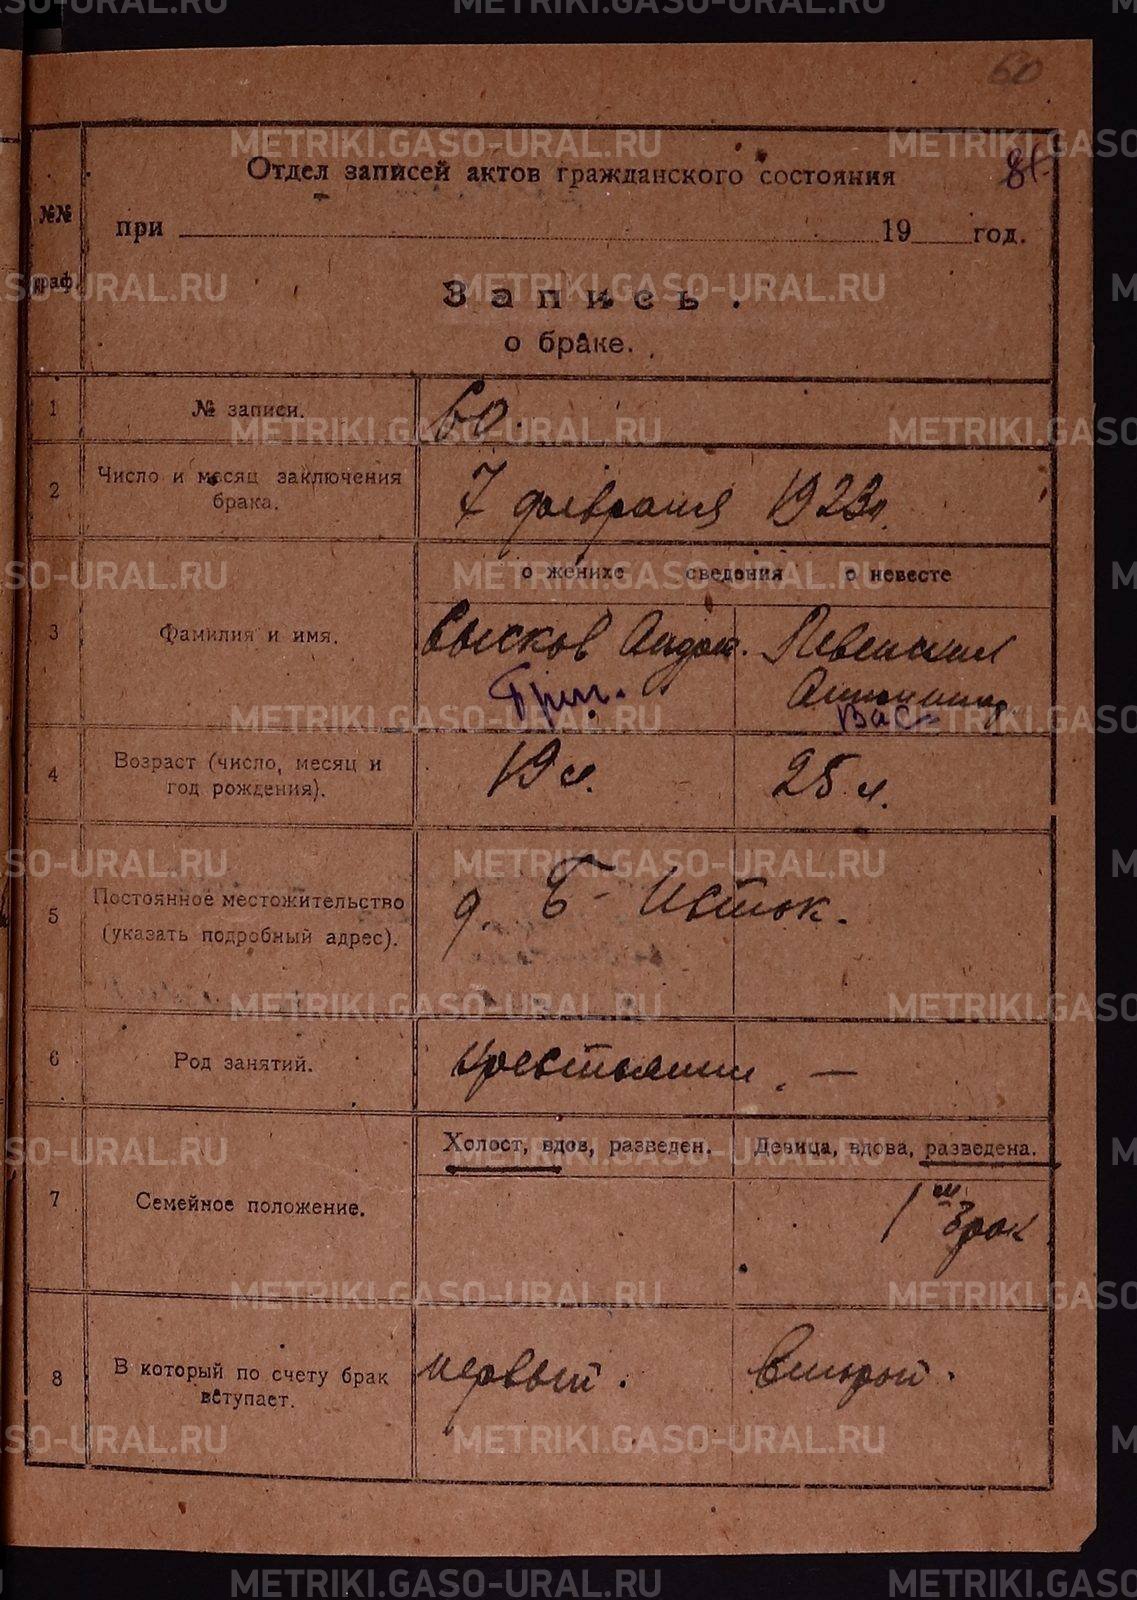 60
Отдел записей актов гражданского состояния
№№ граф.
при 19 год.
Запись
о браке.
1 № записи. 60.
2 Число и месяц заключения брака. 7 февраля 1923 г.
о женихе сведения о невесте
3 Фамилия и имя.
Григ. Вас
4 Возраст (число, месяц и год рождения). 19 л. 25 л.
5 Постоянное местожительство (указать подробный адрес). д. Б-Исток.
6 Род занятий. крестьянин. —
Холост, вдов, разведен. Девица, вдова, разведена.
7 Семейное положение. 1й брак
8 В который по счету брак вступает. первый. Второй.
METRIKI.GASO-URAL.RU